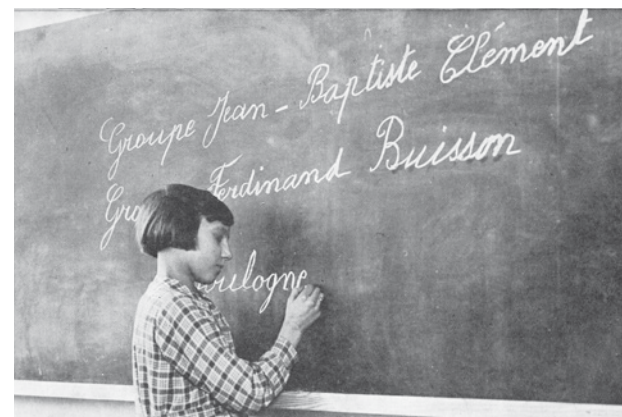 Groupe Jean-Baptiste Clément
Gro Ferdinand Buisson
oulogne